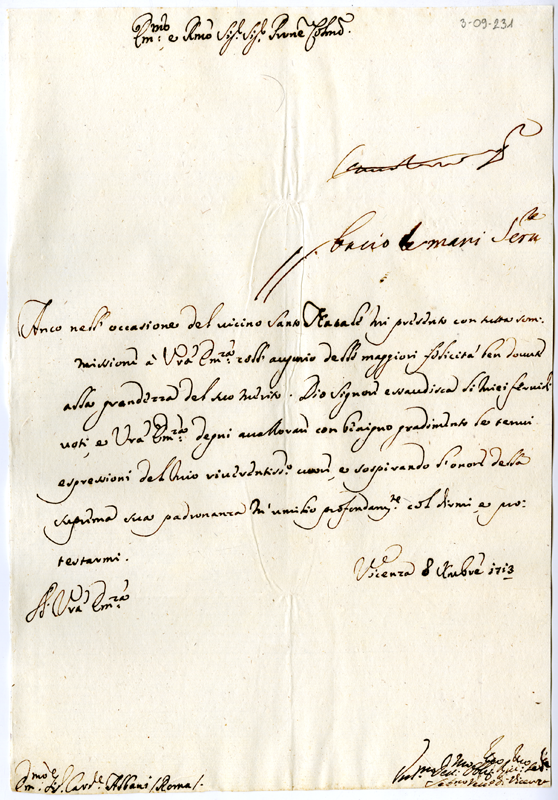 3-09-231
Em.mo e Rmo Sig.r Sig.r Prone Colmo
bacio le mani Seru.te
Anco nell'occasione del uicino Santo Natale mi presento con tutta som.
missione à Vra Em.za coll'augurio delle maggiori felicità ben douute
alla grandezza del suo merito. Dio Signore essaudisca li miei feruidi
uoti, e Vra Em.za degni aualorare con benigno gradimento le tenui
espressioni del mio riuerentiss.o cuore, e sospirando l'onore della
suprema sua padronanza m'umilio profondam.te col dirmi, e pro:
testarmi.
Vicenza 8 Xmbre 1713
Di Vra Em.za
Em.mo e S.r Card.e Albani / Roma /.